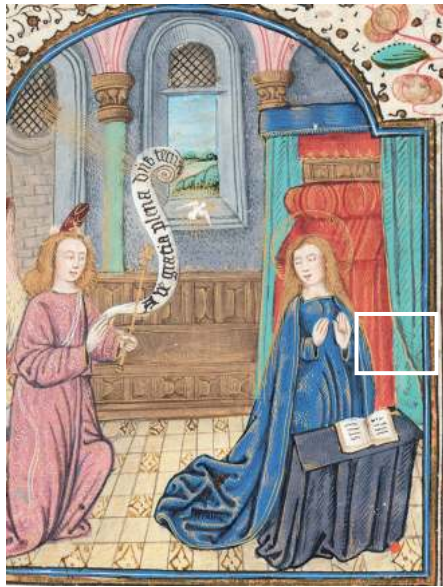 Ave gracia plena dns tecu